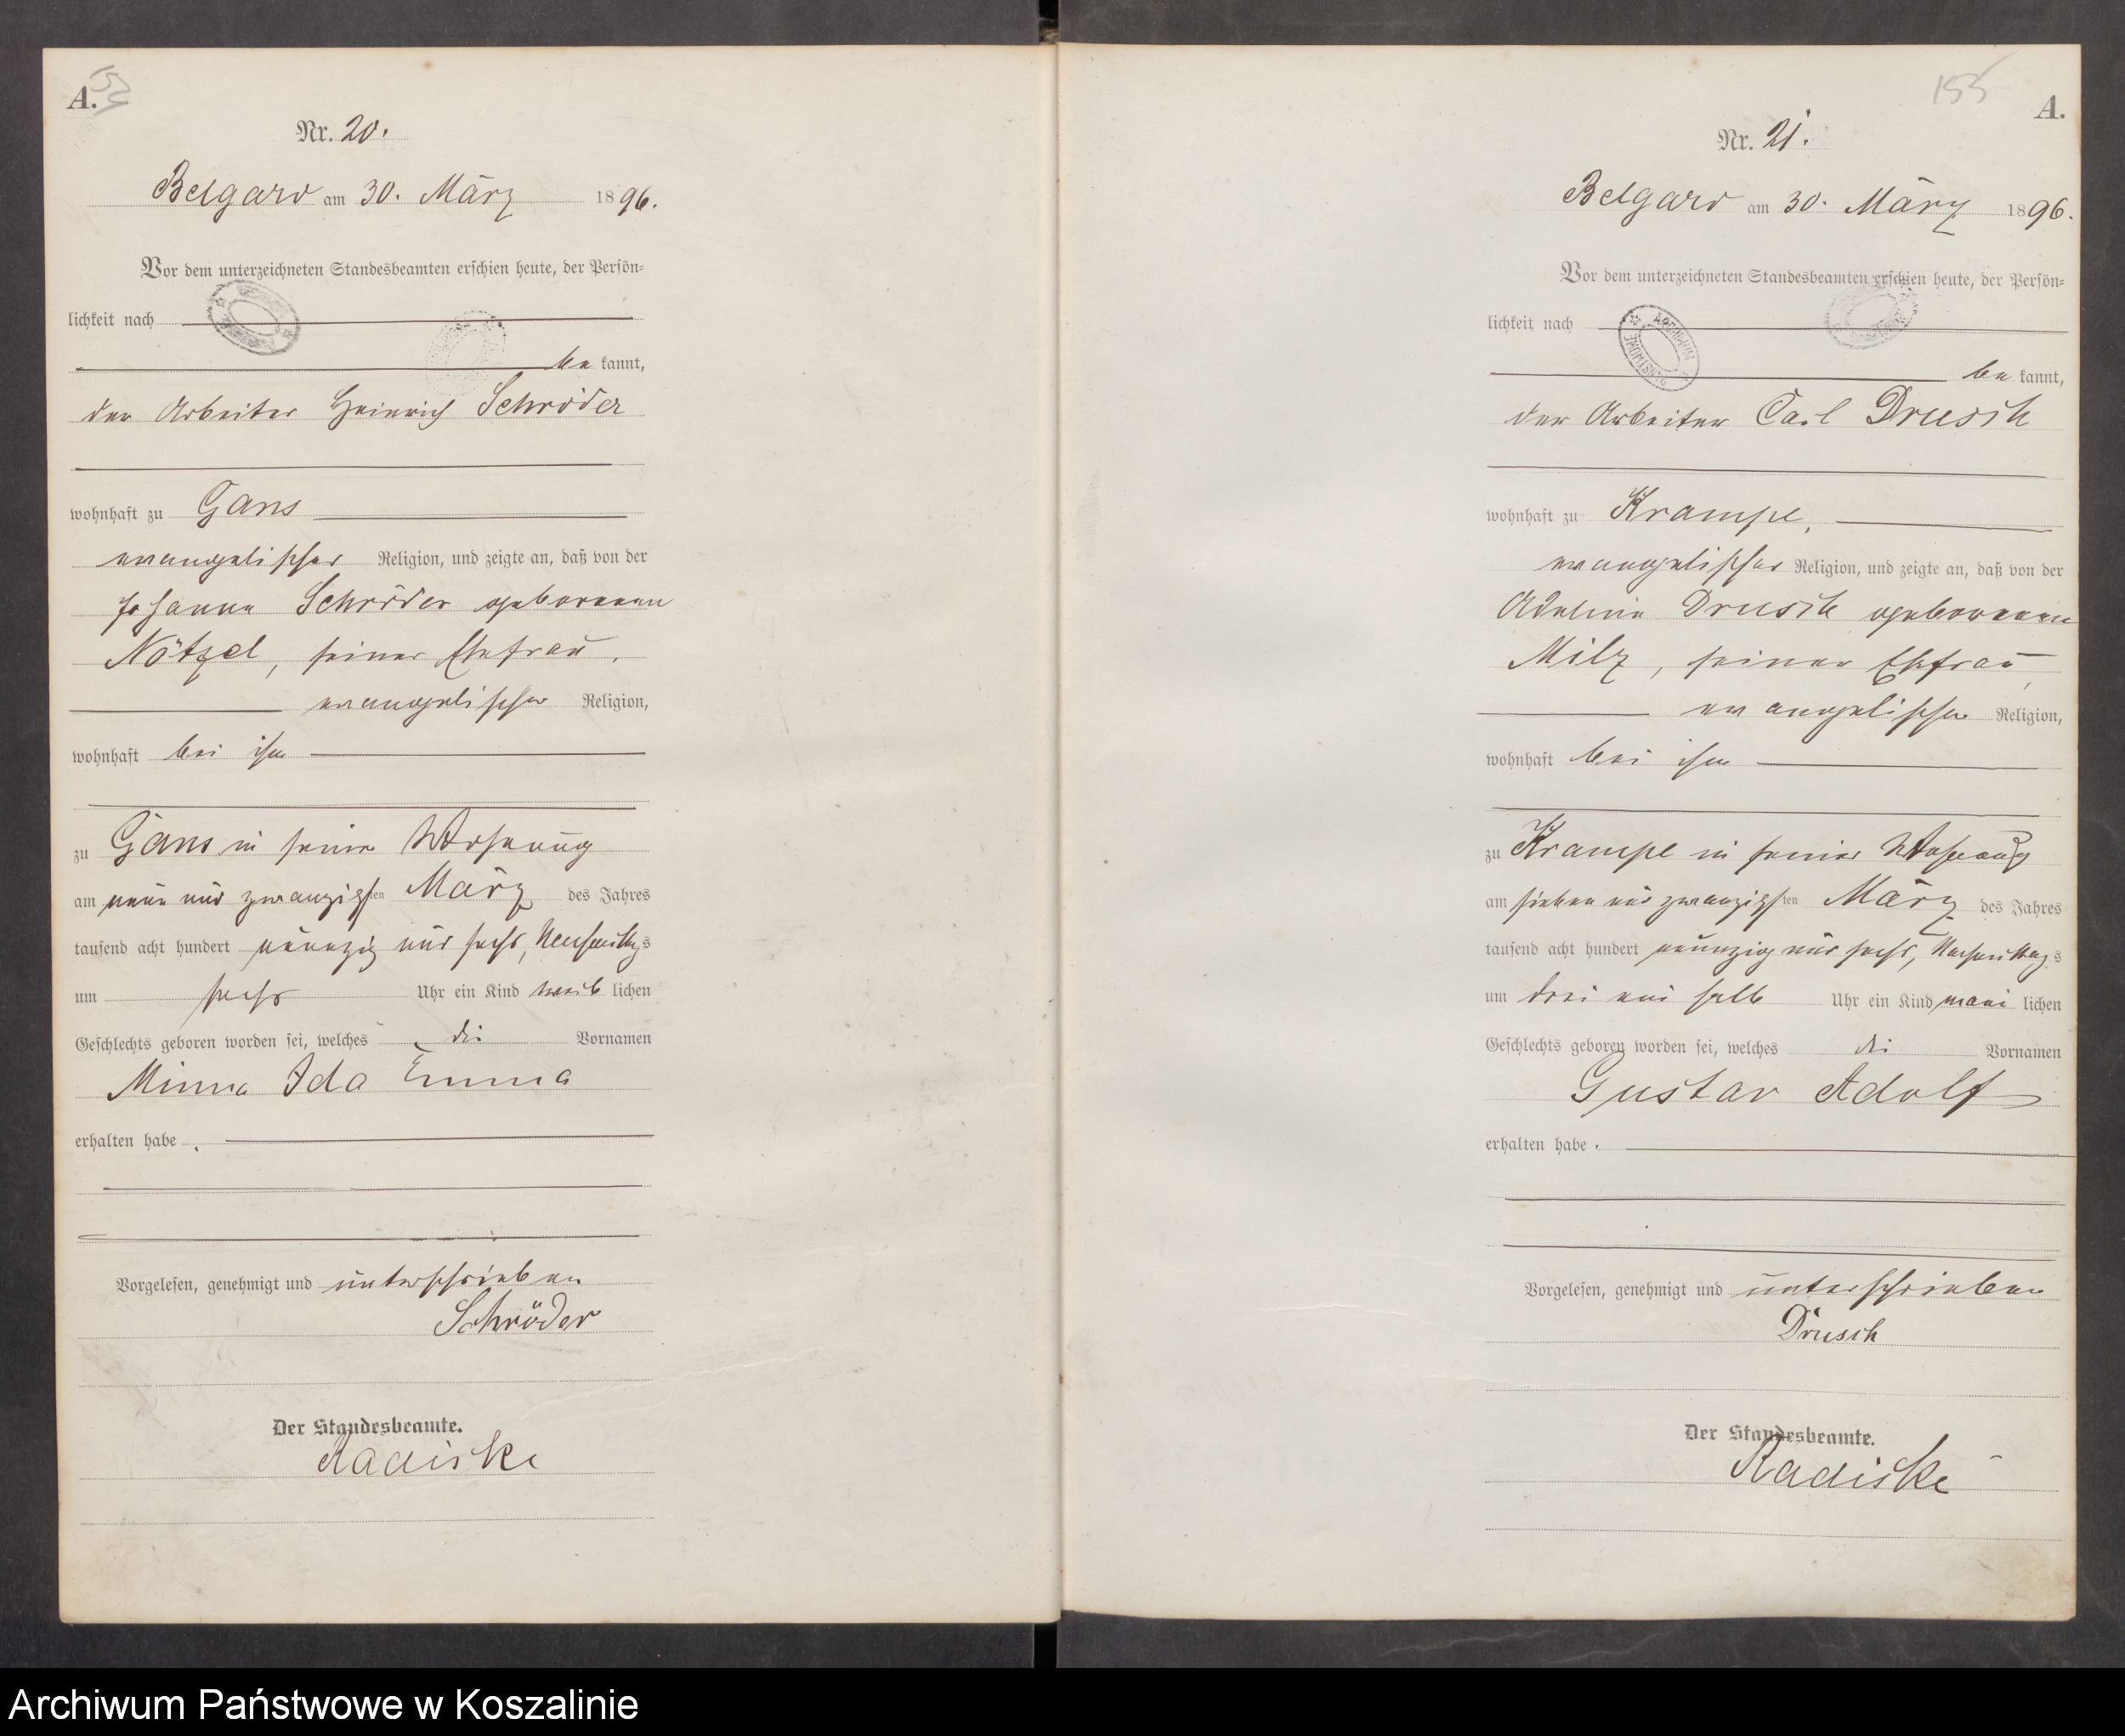 A.
Nr. 20.
Belgard am 30. März 1896.
Vor dem unterzeichneten Standesbeamten erschien heute, der Persön=
lichkeit nach
be kannt,
der Arbeiter Heinrich Schröder
wohnhaft zu Gans
evangelischer Religion, und zeigte an, daß von der
Johanna Schröder geborenen
Nötzel, seiner Ehefrau,
evangelischer Religion,
wohnhaft bei ihm
zu Gans in seiner Wohnung
am neun und zwanzigsten März des Jahres
tausend acht hundert neunzig und sechs, Nachmittags
um sechs Uhr ein Kind weib lichen
Geschlechts geboren worden sei, welches die Vornamen
Minna Ida Emma
erhalten habe.
Vorgelesen, genehmigt und unterschrieben
Schröder
Der Standesbeamte.
Radiske
155
A.
Nr. 21.
Belgard am 30. März 1896.
Vor dem unterzeichneten Standesbeamten erschien heute, der Persön=
lichkeit nach
ARCHIWUM
be kannt,
der Arbeiter Carl Drusch
wohnhaft zu Krampe,
evangelischer Religion, und zeigte an, daß von der
Adeline Drusch geborenen
Milz, seiner Ehefrau,
evangelischer Religion,
wohnhaft bei ihm
zu Krampe in seiner Wohnung
am sieben und zwanzigsten März des Jahres
tausend acht hundert neunzig und sechs, Nachmittags
um drei ein halb Uhr ein Kind männ lichen
Geschlechts geboren worden sei, welches die Vornamen
Gustav Adolf
erhalten habe.
Vorgelesen, genehmigt und unterschrieben
Drusch
Der Standesbeamte.
Radiske
Archiwum Państwowe w Koszalinie